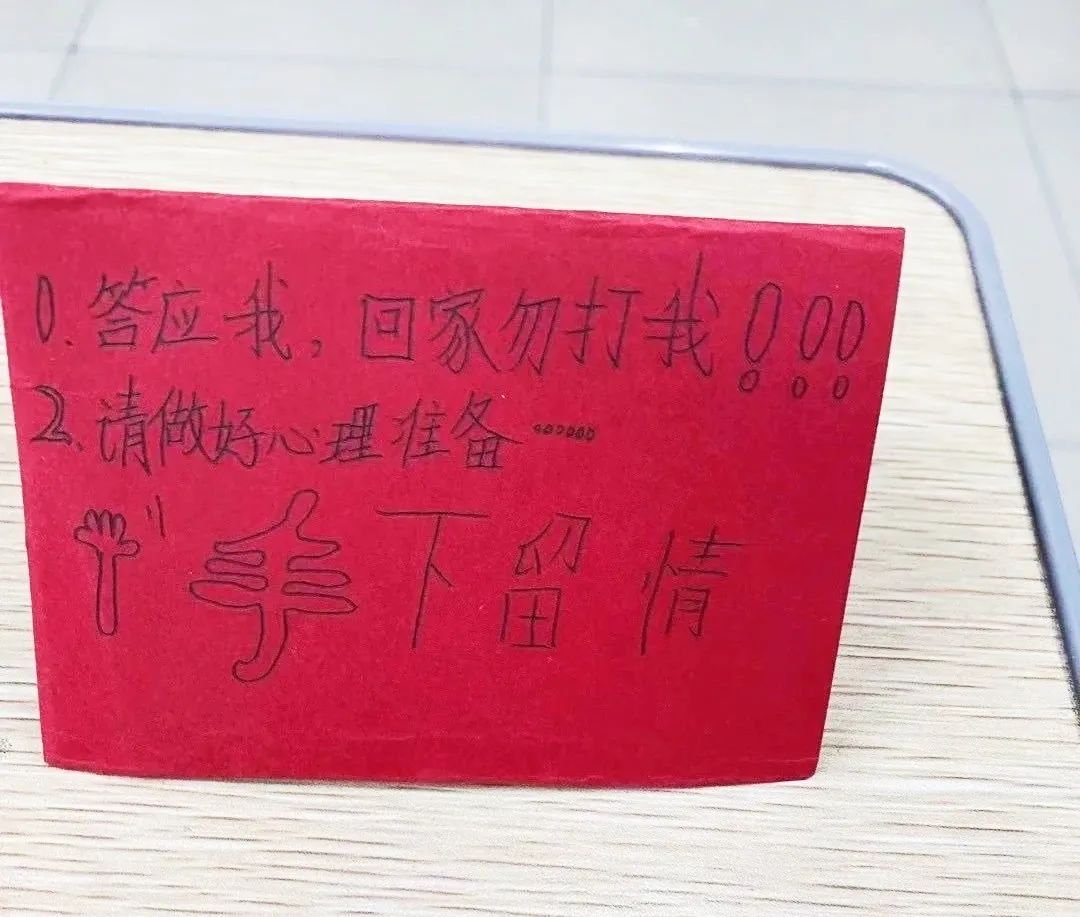 1.答应我，回家勿打我！！！
2、请做好心理准备……
手下留情